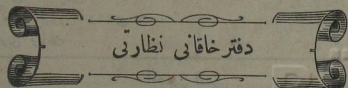 دفتر خاقانی نظارتی